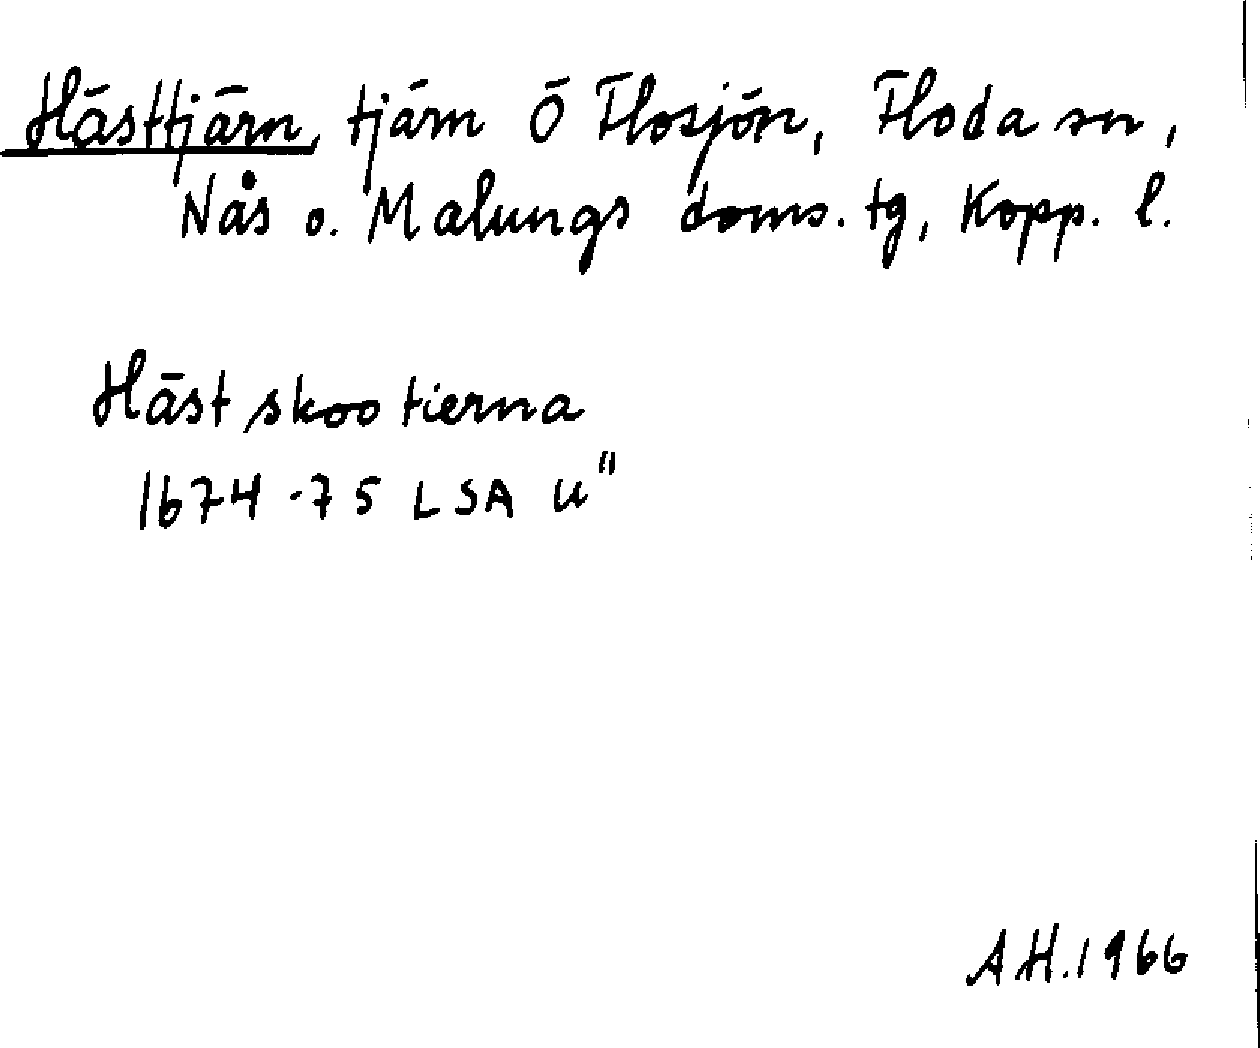 Hästtjärn, tjärn Ö Flosjön, Floda sn,
Nås o. Malungs doms. tg, Kopp. l.
Häst skoo tierna
1674-75 LSA U"
A.H. 1966